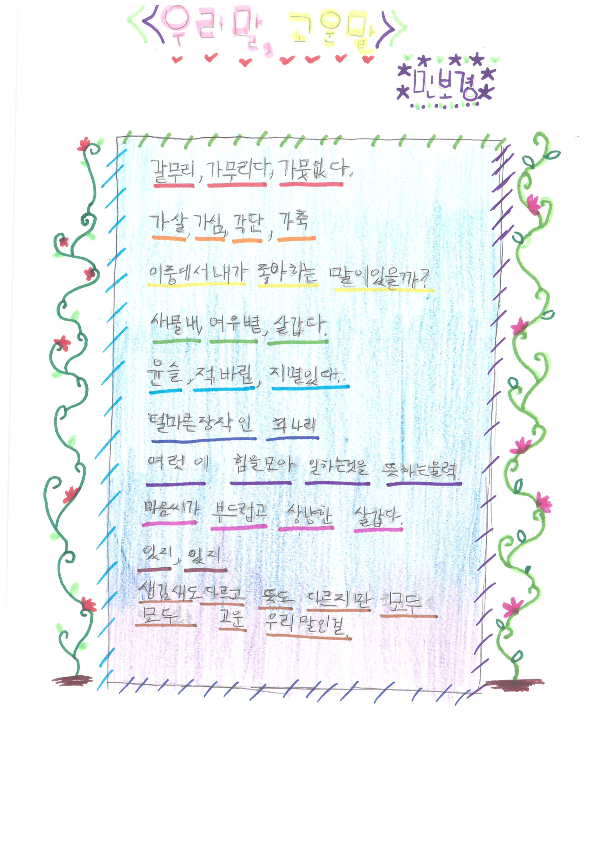 <우리말, 고운말>
민보경
갈무리, 가무리다, 가뭇없다.
가살, 가심, 각단, 가축
이중에서 내가 좋아하는 말이있을까?
새물내, 여우볕, 살갑다.
윤슬, 적바림, 지멸있다.
덜마른장작인 희나리
여럿이 힘을모아 일하는것을 뜻하는울력
마음씨가 부드럽고 상냥한 살갑다.
있지, 잊지
생김새도 다르고 뜻도 다르지만 모두
모두 고운 우리말인걸